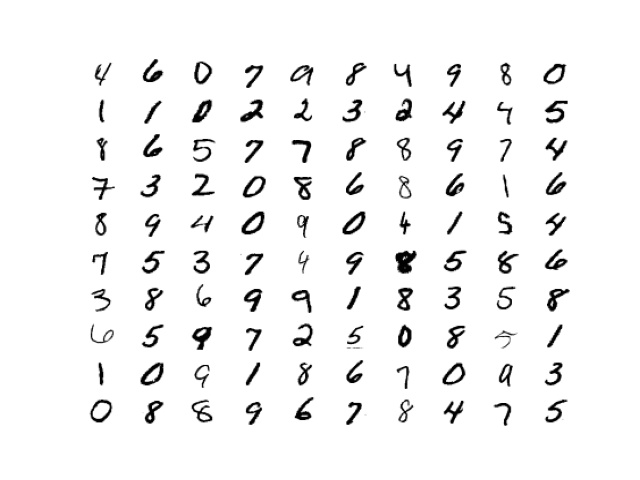 4 6 0 7 9 8 4 9 8 0
1 1 0 2 2 3 2 4 4 5
8 6 5 7 7 8 8 9 7 4
7 3 2 0 8 6 8 6 1 6
8 9 4 0 9 0 4 1 5 4
7 5 3 7 4 9 8 5 8 6
3 8 6 9 9 1 8 3 5 8
6 5 9 7 2 5 0 8 5 1
1 0 9 1 8 6 7 0 9 3
0 8 8 9 6 7 8 4 7 5